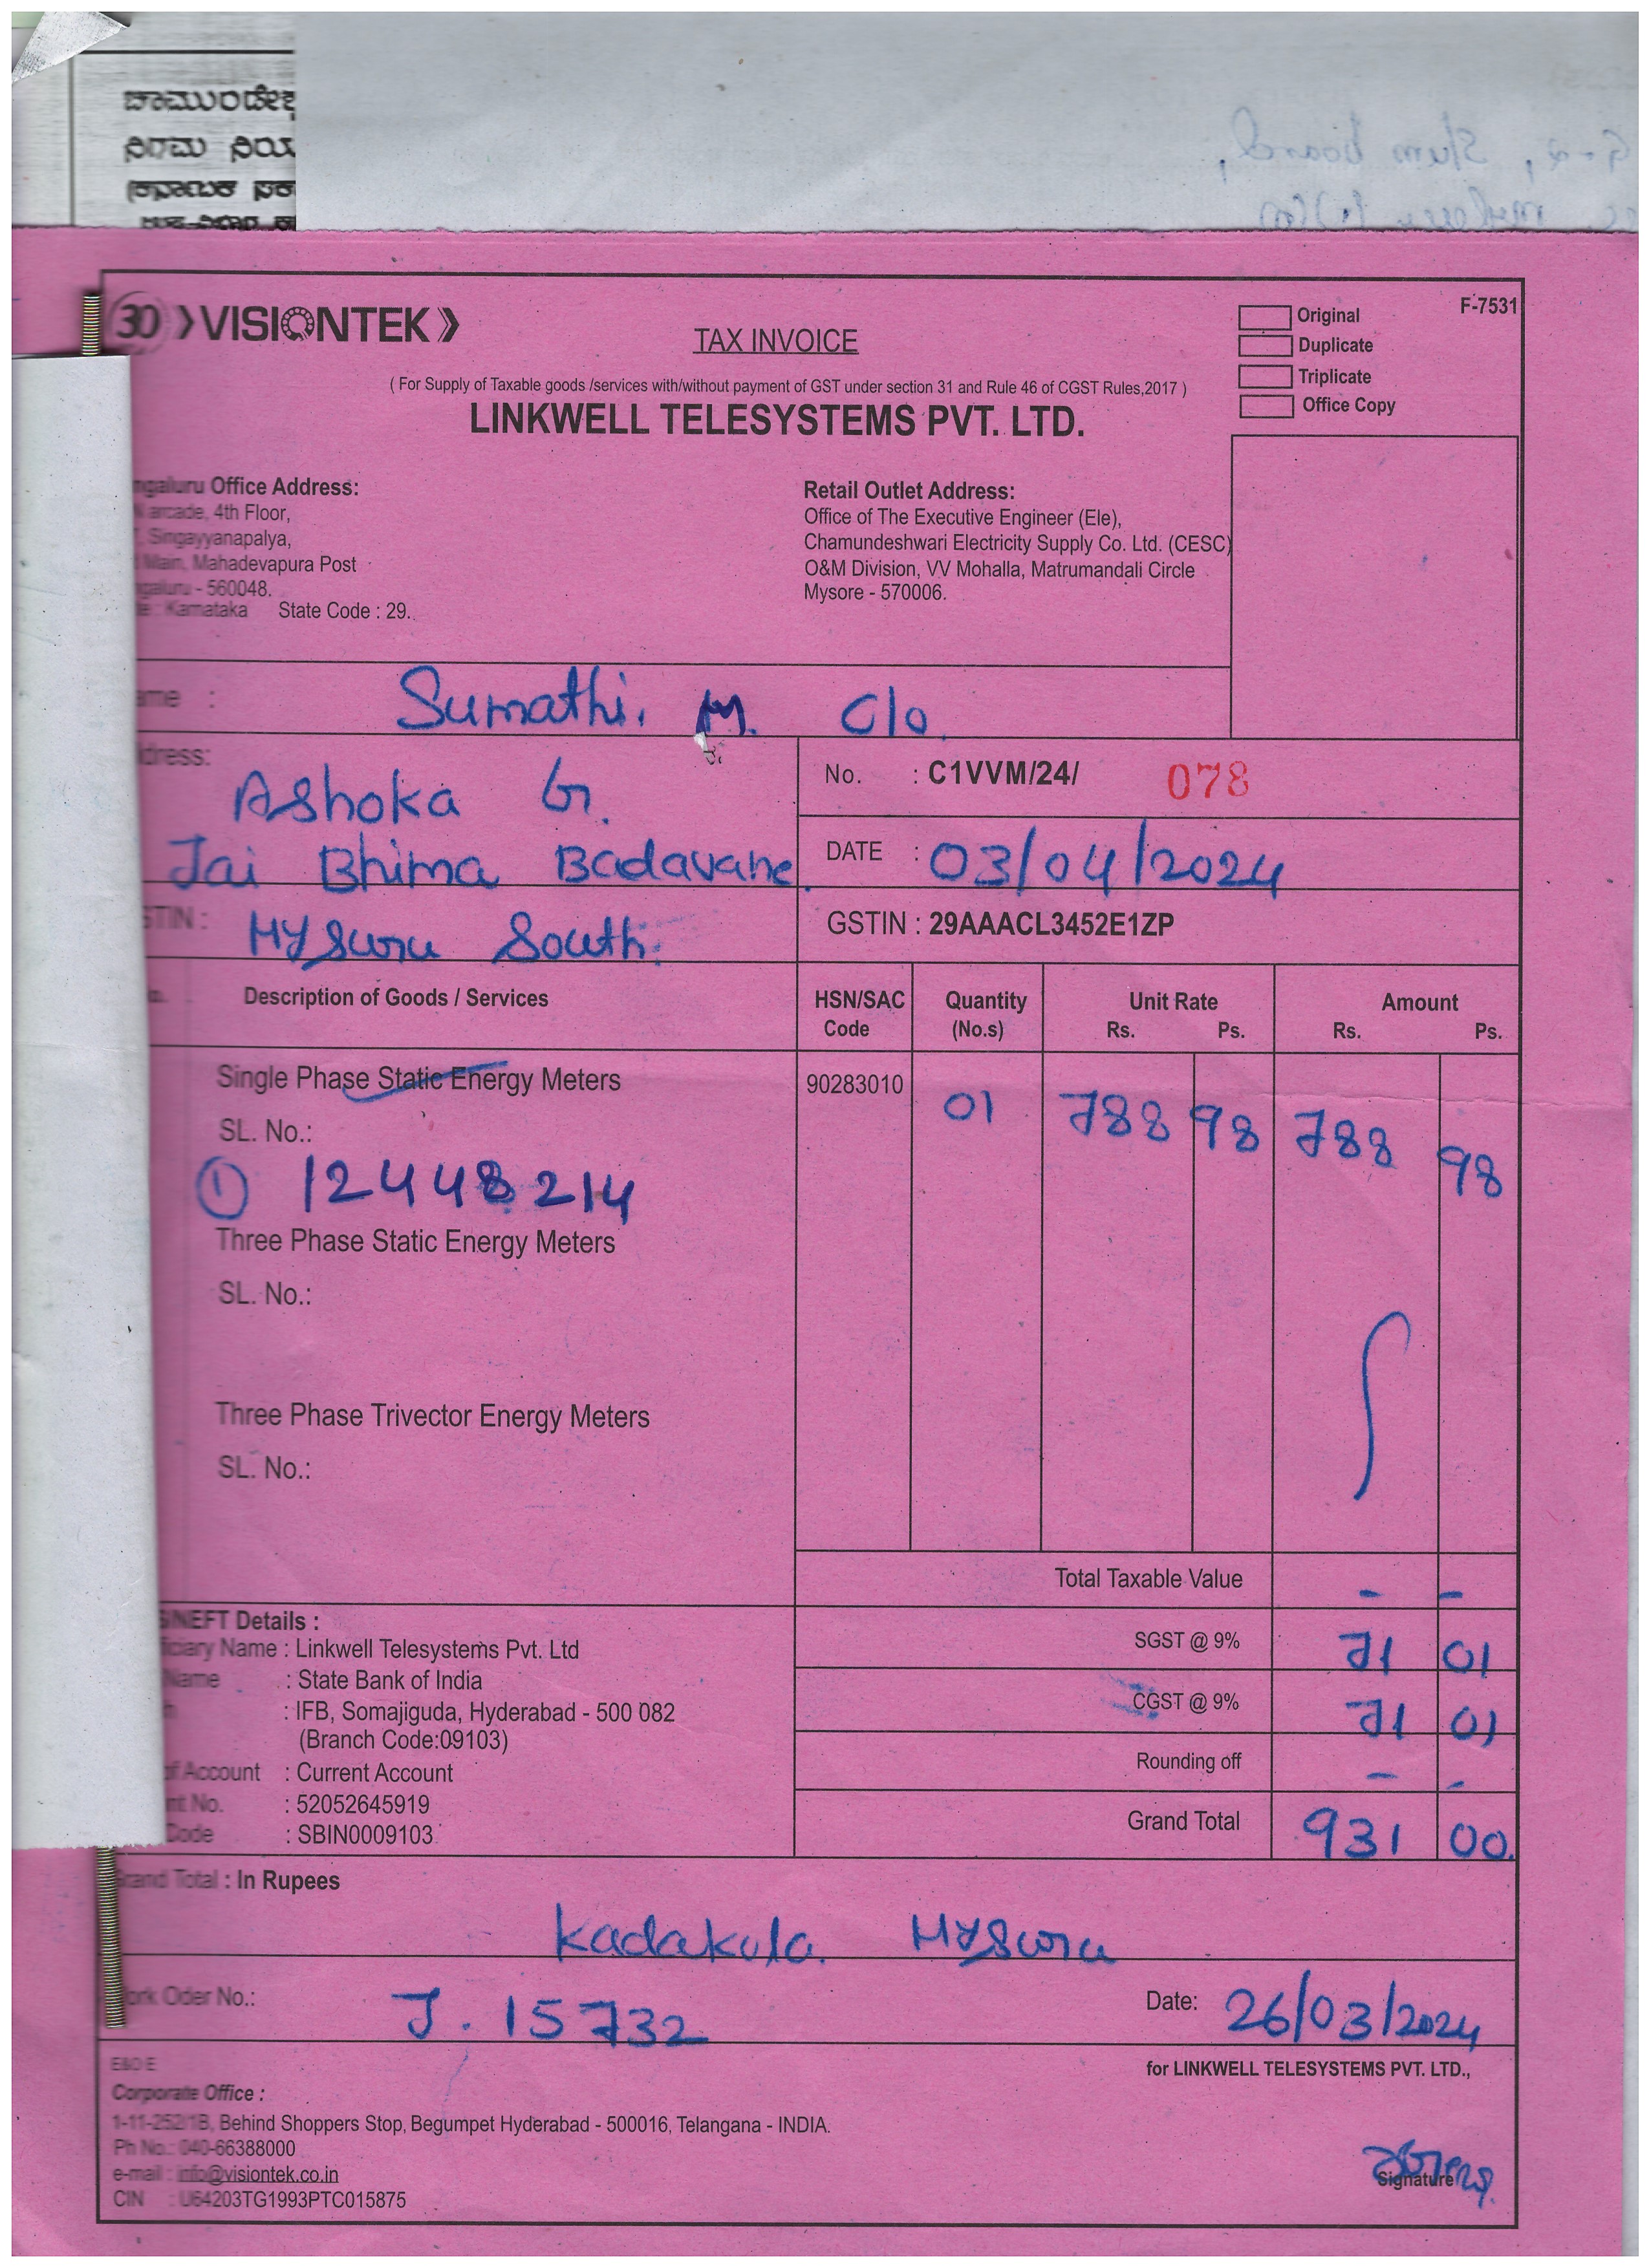 ಚಾಮುಂಡೇಶ್ವ
ನಿಗಮ ನಿಯ
30 VISIONTEK
TAX INVOICE
F-7531
Original
Duplicate
Triplicate
Office Copy
( For Supply of Taxable goods /services with/without payment of GST under section 31 and Rule 46 of CGST Rules,2017 )
LINKWELL TELESYSTEMS PVT. LTD.
ngaluru Office Address:
arcade, 4th Floor,
Singayyanapalya,
Main, Mahadevapura Post
galuru - 560048.
te : Karnataka State Code : 29.
Retail Outlet Address:
Office of The Executive Engineer (Ele),
Chamundeshwari Electricity Supply Co. Ltd. (CESC)
O&M Division, VV Mohalla, Matrumandali Circle
Mysore - 570006.
ame : Sumathi. M. C/o
ddress: Ashoka G.
Jai Bhima Badavane.
No. : C1VVM/24/ 078
DATE : 03/04/2024
STIN : Mysuru South.
GSTIN : 29AAACL3452E1ZP
Description of Goods / Services HSN/SAC Code Quantity (No.s) Unit Rate Rs. Ps. Amount Rs. Ps.
Single Phase Static Energy Meters 90283010 01 788 98 788 98
SL. No.:
① 12448214
Three Phase Static Energy Meters
SL. No.:
Three Phase Trivector Energy Meters
SL. No.:
Total Taxable Value - -
SGST @ 9% 71 01
CGST @ 9% 71 01
Rounding off - -
Grand Total 931 00.
S/NEFT Details :
iciary Name : Linkwell Telesystems Pvt. Ltd
Name : State Bank of India
h : IFB, Somajiguda, Hyderabad - 500 082
(Branch Code:09103)
of Account : Current Account
nt No. : 52052645919
Code : SBIN0009103
Grand Total : In Rupees
Kadakola. Mysuru
ork Oder No.: J. 15732
Date: 26/03/2024
E&O E
for LINKWELL TELESYSTEMS PVT. LTD.,
Corporate Office :
1-11-252/1B, Behind Shoppers Stop, Begumpet Hyderabad - 500016, Telangana - INDIA.
Ph No.: 040-66388000
e-mail : info@visiontek.co.in
CIN : U64203TG1993PTC015875
Signature